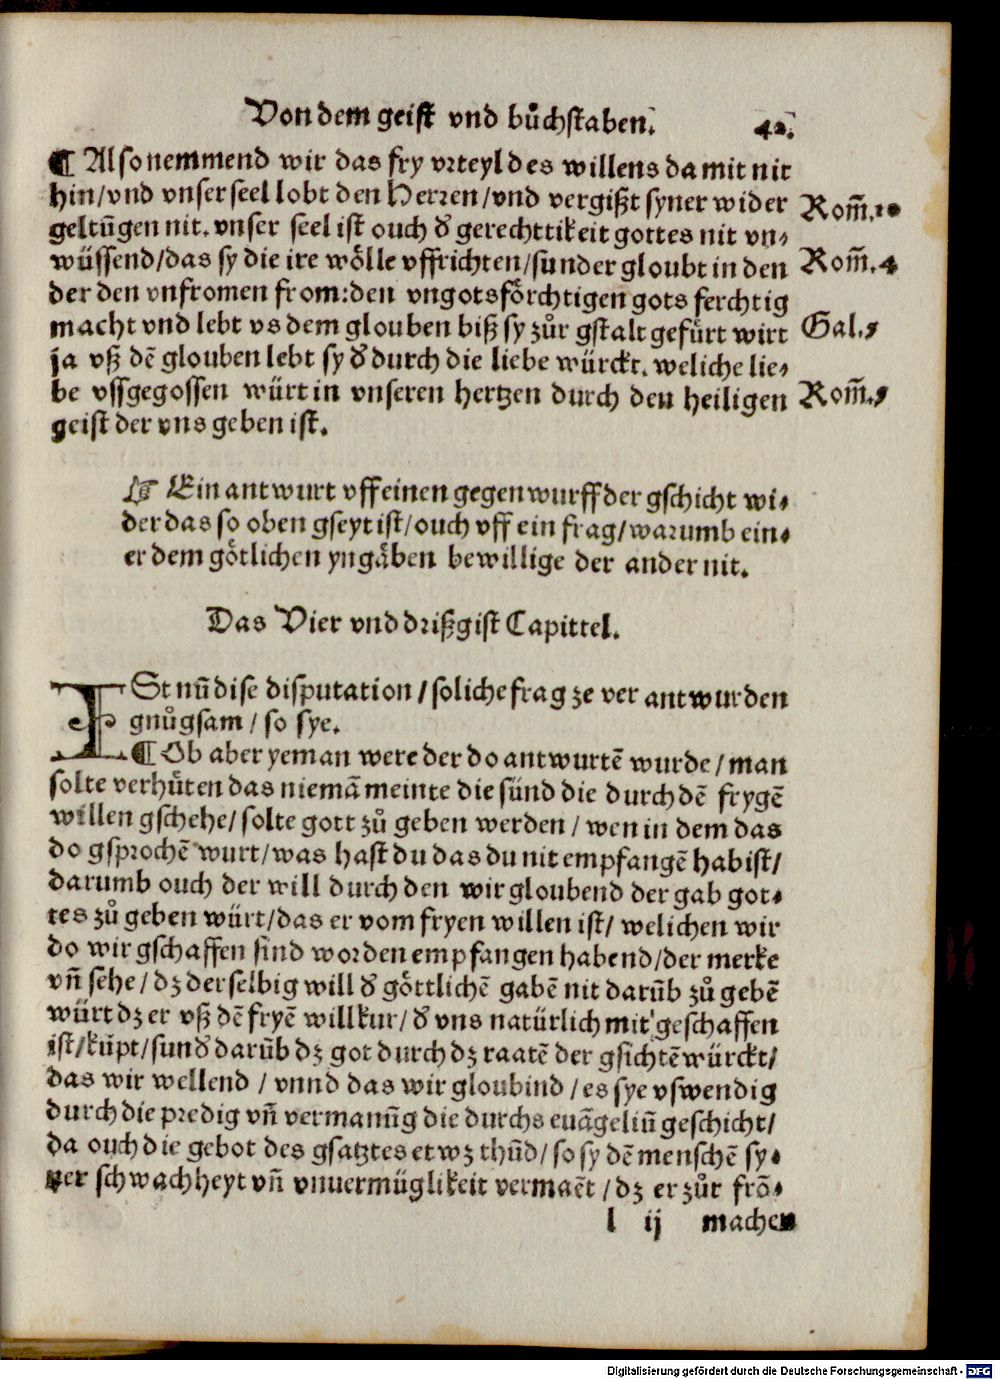 Von dem geist vnd bůchstaben. 42.
¶ Also nemmend wir das fry vrteyl des willens da mit nit
hin/vnd vnser seel lobt den Herren/vnd vergißt syner wider Rom̄.10
geltūgen nit. vnser seel ist ouch d᷑ gerechttikeit gottes nit vn⸗
wüssend/das sy die ire wölle vffrichten/sunder gloubt in den Rom̄.4
der den vnfromen from:den vngotsförchtigen gots ferchtig
macht vnd lebt vs dem glouben biß sy zůr gstalt gefürt wirt Gal.5
ja vß dē glouben lebt sy d᷑ durch die liebe würckt. weliche lie⸗
be vssgegossen würt in vnseren hertzen durch den heiligen Rom̄.5
geist der vns geben ist.
☞ Ein antwurt vff einen gegenwurff der gschicht wi⸗
der das so oben gseyt ist/ouch vff ein frag/warumb ein⸗
er dem götlichen yngåben bewillige der ander nit.
Das Vier vnd drißgist Capittel.
ISt nū dise disputation/soliche frag ze ver antwurden
gnůgsam/so sye.
¶ Ob aber yeman were der do antwurtē wurde/man
solte verhůten das niemā meinte die sünd die durch dē frygē
willen gschehe/solte gott zů geben werden/wen in dem das
do gsprochē wurt/was hast du das du nit empfangē habist/
darumb ouch der will durch den wir gloubend der gab got⸗
tes zů geben würt/das er vom fryen willen ist/welichen wir
do wir gschaffen sind worden empfangen habend/der merke
vn̄ sehe/dz der selbig will d᷑ göttlichē gabē nit darūb zů gebē
würt dz er vß dē fryē willkur/d᷑ vns natürlich mit geschaffen
ist/kūpt/sund᷑ darūb dz got durch dz raatē der gsichtē würckt/
das wir wellend/vnnd das wir gloubind/es sye vswendig
durch die predig vn̄ vermanūg die durchs euāgeliū geschicht/
da ouch die gebot des gsatztes etwz thūd/so sy dē menschē sy⸗
ner schwachheyt vn̄ vnuermüglikeit vermaēt/dz er zůr frō⸗
l ij machen
Digitalisierung gefördert durch die Deutsche Forschungsgemeinschaft - DFG